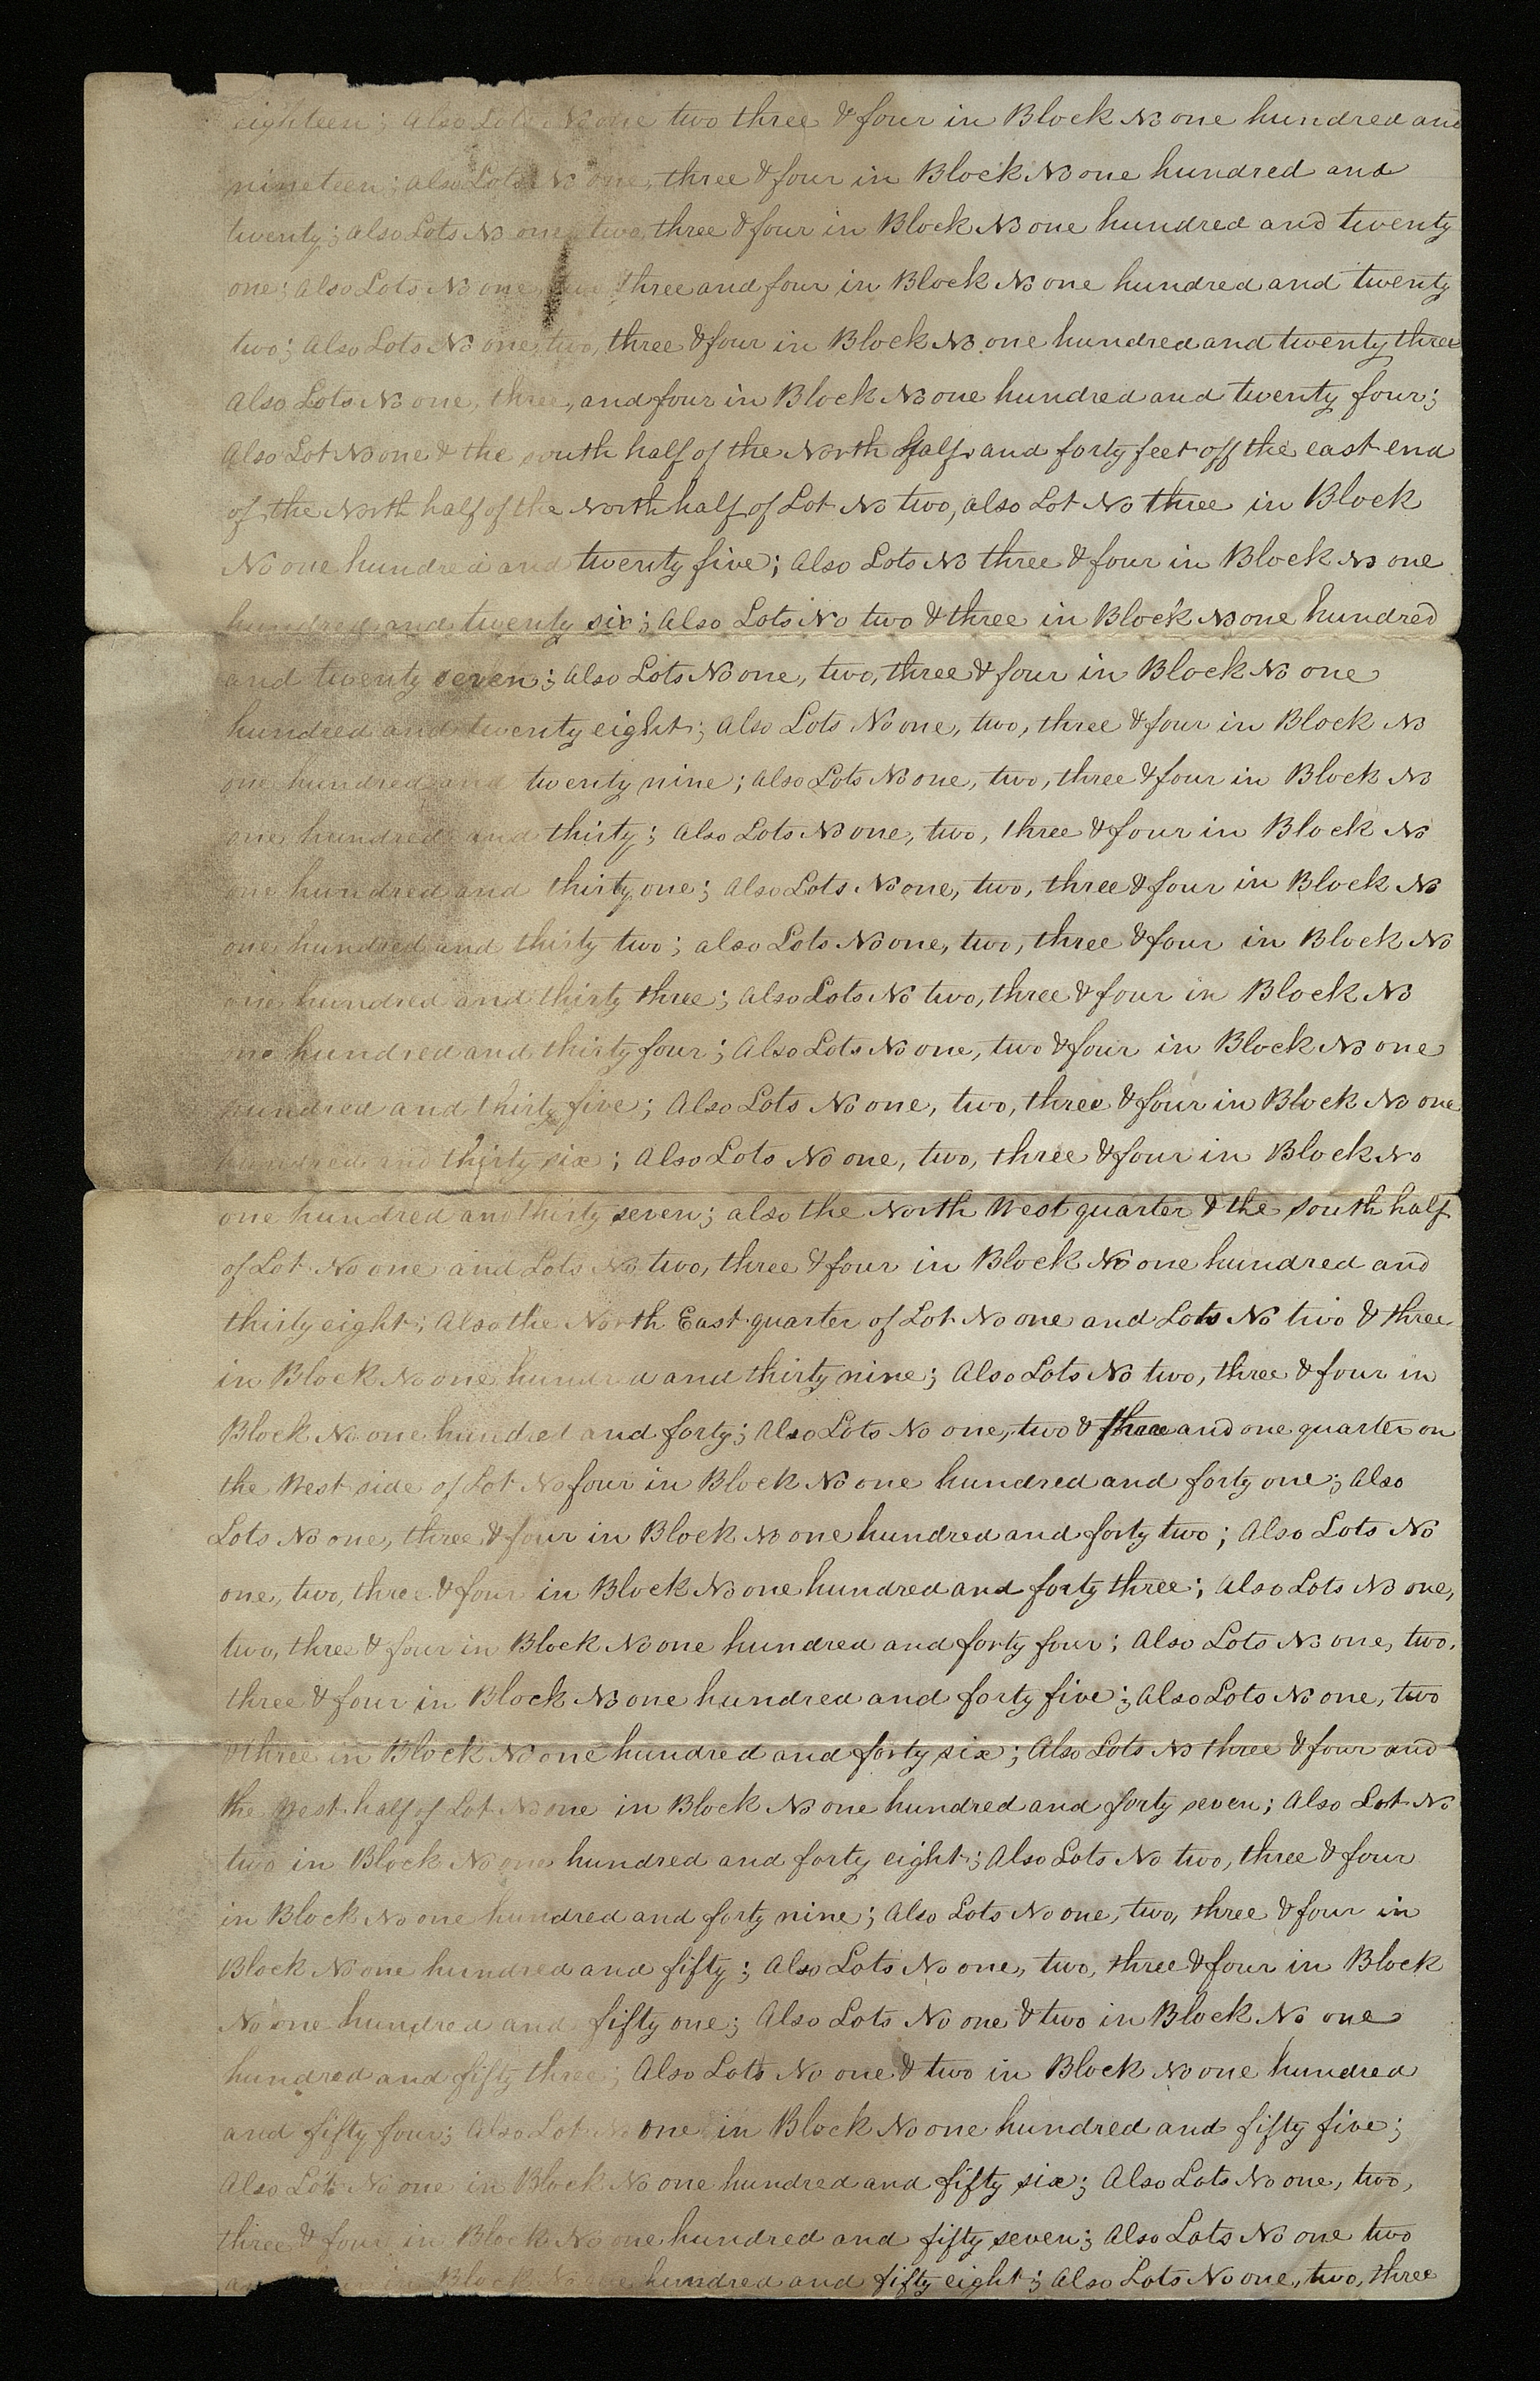 eighteen; also Lots No one two three & four in Block No one hundred and
nineteen; also Lots No one, three & four in Block No one hundred and
twenty; also Lots No one, two, three & four in Block No one hundred and twenty
one; also Lots No one, two three and four in Block No one hundred and twenty
two; also Lots No one, two, three & four in Block No one hundred and twenty three
also Lots No one, three, and four in Block No one hundred and twenty four;
Also Lot No one & the south half of the North half and forty feet off the east end
of the North half of the North half of Lot No two, also Lot No three in Block
No one hundred and twenty five; Also Lots No three & four in Block No one
hundred and twenty six; Also Lots No two & three in Block No one hundred
and twenty seven; Also Lots No one, two, three & four in Block No one
hundred and twenty eight; Also Lots No one, two, three & four in Block No
one hundred and twenty nine; Also Lots No one, two, three & four in Block No
one hundred and thirty; Also Lots No one, two, three & four in Block No
one hundred and thirty one; Also Lots No one, two, three & four in Block No
one hundred and thirty two; also Lots No one, two, three & four in Block No
one hundred and thirty three; Also Lots No two, three & four in Block No
one hundred and thirty four; Also Lots No one, two & four in Block No one
hundred and thirty five; Also Lots No one, two, three & four in Block No one
hundred and thirty six; Also Lots No one, two, three & four in Block No
one hundred and thirty seven; also the North West quarter & the south half
of Lot No one and Lots No two, three & four in Block No one hundred and
thirty eight; Also the North East quarter of Lot No one and Lots No two & three
in Block No one hundred and thirty nine; Also Lots No two, three & four in
Block No one hundred and forty; Also Lots No one, two & three and one quarter on
the West side of Lot No four in Block No one hundred and forty one; Also
Lots No one, three & four in Block No one hundred and forty two; Also Lots No
one, two, three & four in Block No one hundred and forty three; Also Lots No one,
two, three & four in Block No one hundred and forty four; Also Lots No one, two,
three & four in Block No one hundred and forty five; Also Lots No one, two
& three in Block No one hundred and forty six; Also Lots No three & four and
the West half of Lot No one in Block No one hundred and forty seven; Also Lot No
two in Block No one hundred and forty eight; Also Lots No two, three & four
in Block No one hundred and forty nine; Also Lots No one, two, three & four in
Block No one hundred and fifty; Also Lots No one, two, three & four in Block
No one hundred and fifty one; Also Lots No one & two in Block No one
hundred and fifty three; Also Lots No one & two in Block No one hundred
and fifty four; Also Lot No one in Block No one hundred and fifty five;
Also Lot No one in Block No one hundred and fifty six; Also Lots No one, two,
three & four in Block No one hundred and fifty seven; Also Lots No one two
in Block No one hundred and fifty eight; Also Lots No one, two, three